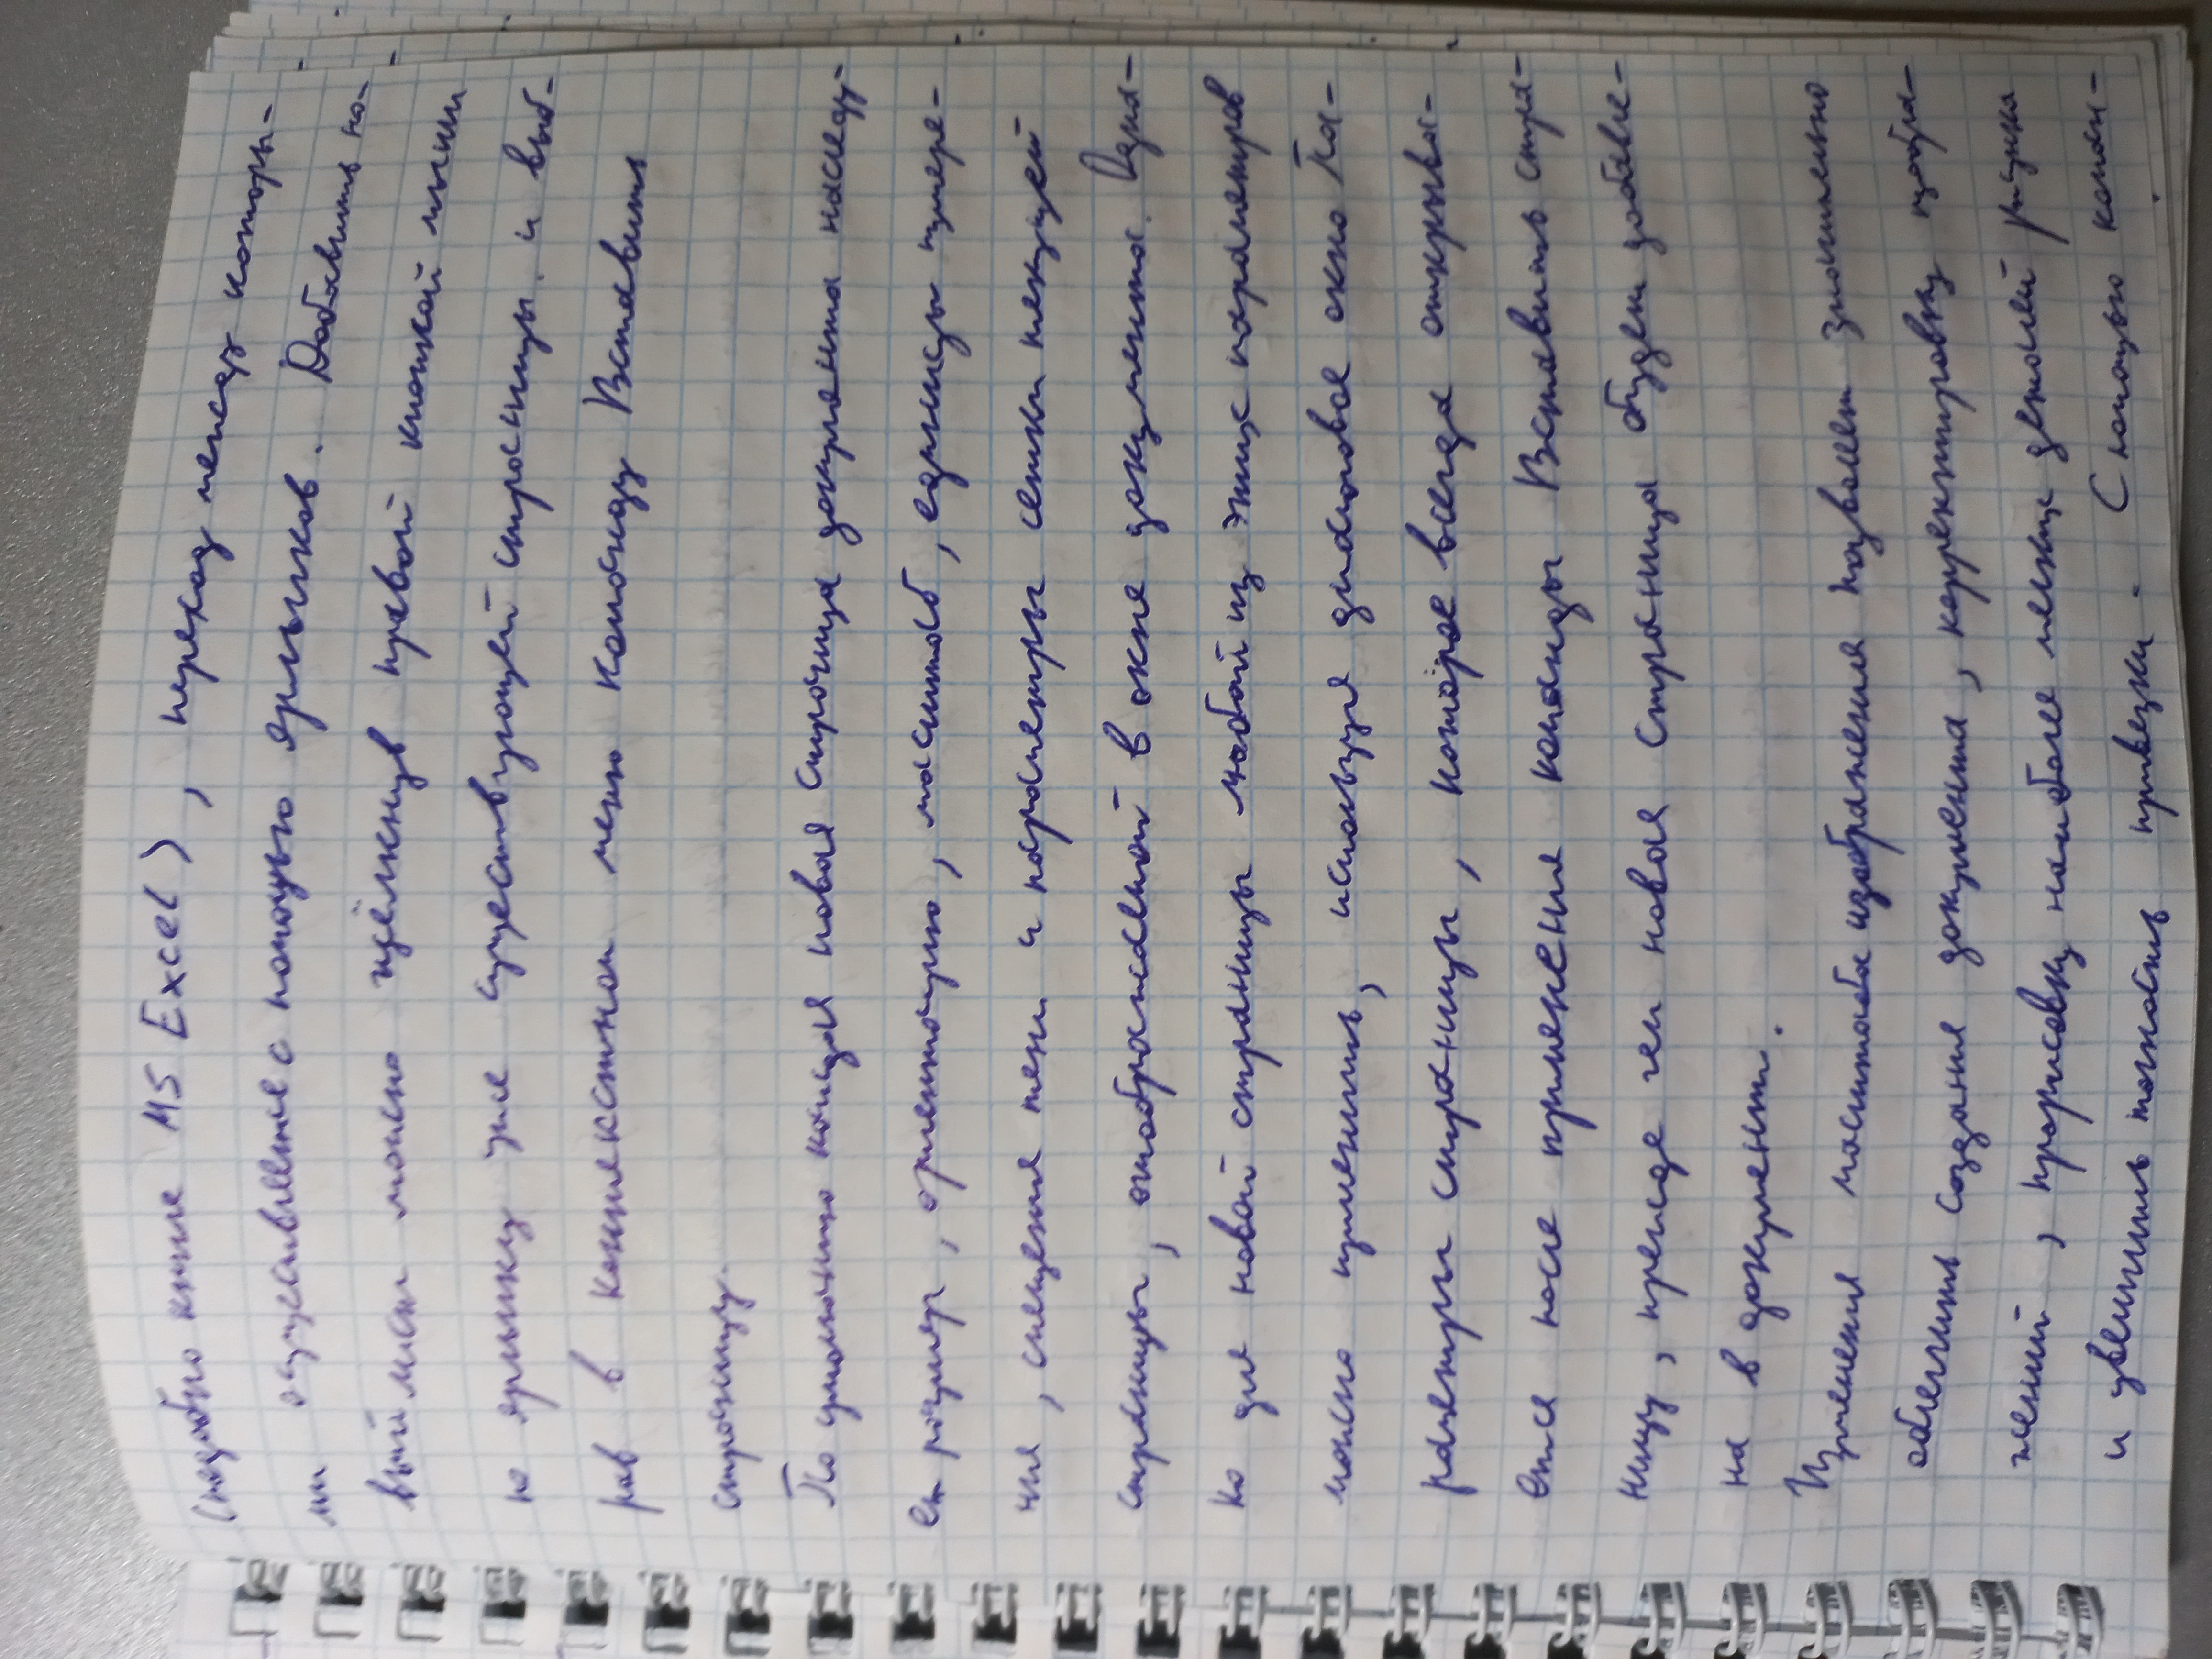 (подобно книге MS Excel), переход между которы-
ми осуществляется с помощью ярлыков. Добавить но-
вый лист можно щёлкнув правой кнопкой мыши
по ярлыку уже существующей страницы и выб-
рав в контекстном меню команду Вставить
страницу.
По умолчанию каждая новая страница документа наследу-
ет размер, ориентацию, масштаб, единицы измере-
ния, смещения тени и параметры сетки текущей
страницы, отображаемой в окне документа. Одна-
ко для новой страницы любой из этих параметров
можно изменить, используя диалоговое окно Па-
раметры страницы, которое всегда открыва-
ется после применения команды Вставить стра-
ницу, прежде чем новая страница будет добавле-
на в документ.
Изменения масштаба изображения позволяет значительно
облегчить создание документа, корректировку изобра-
жений, прорисовку наиболее мелких деталей рисунка
и увеличить точность привязки. С помощью коман-